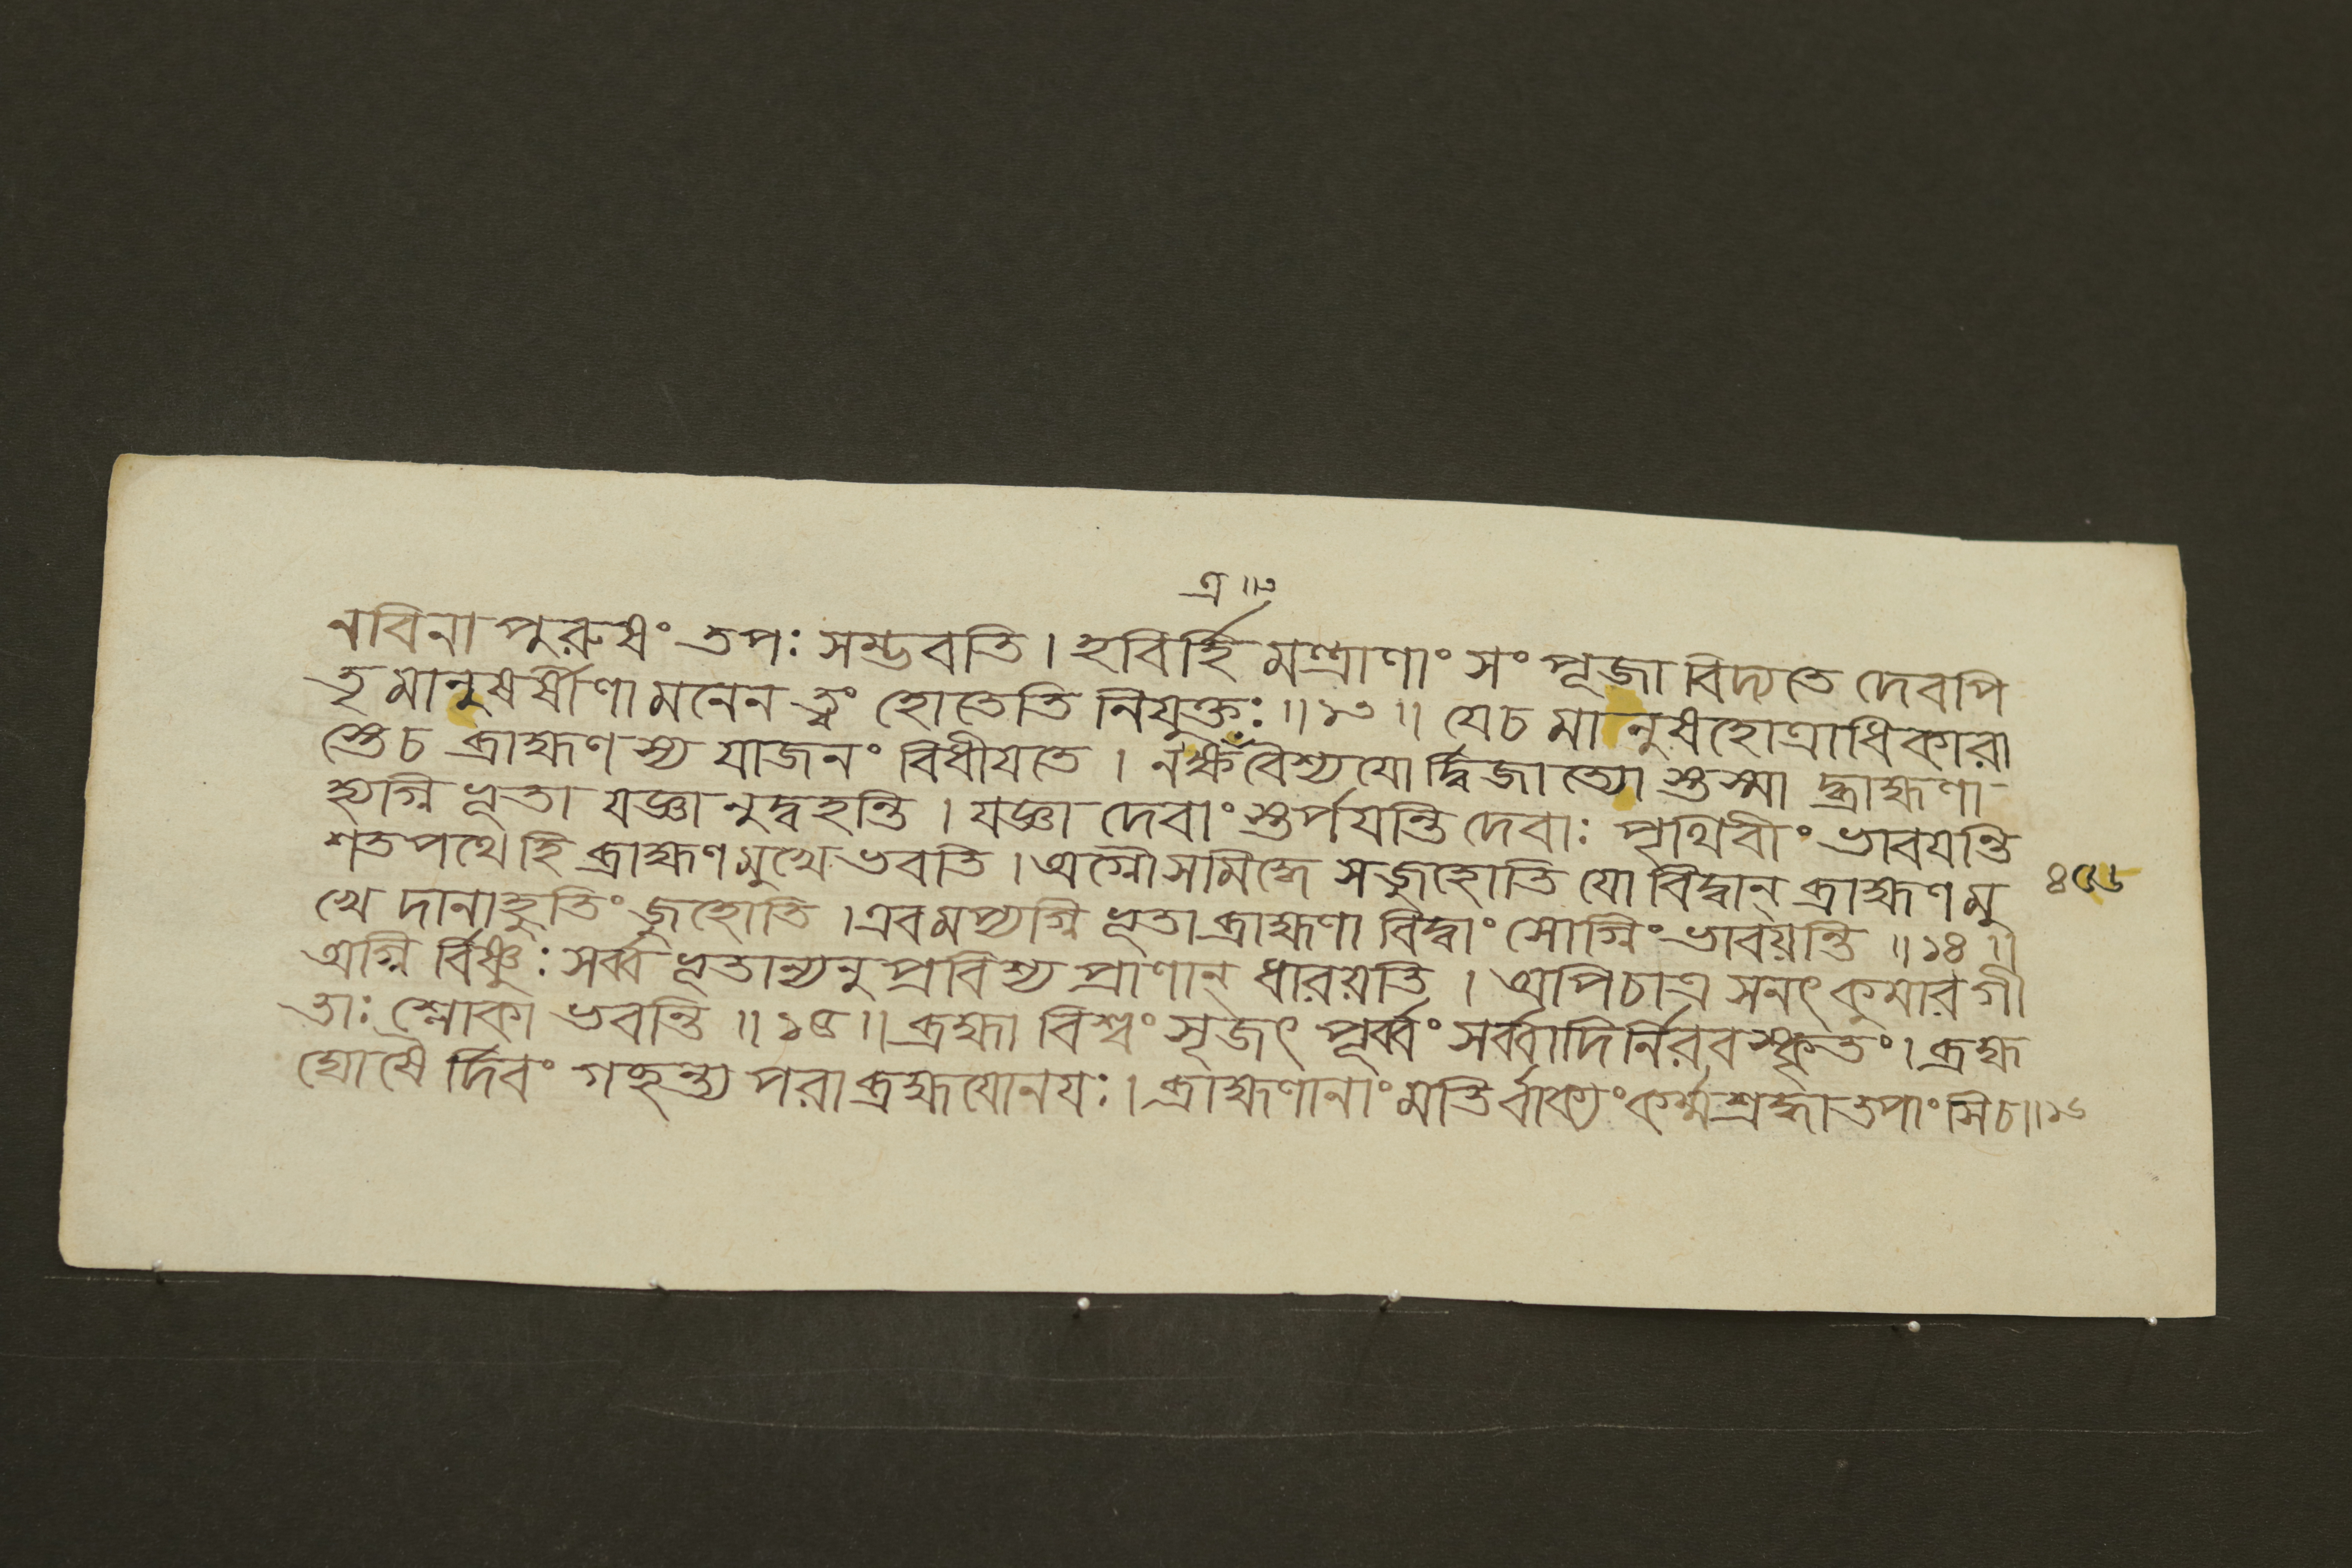 ত্র ॥৩
নবিনা পুরুষং তপঃ সম্ভবতি । হবির্হি মন্ত্রাণাং সং পূজা বিদ্যতে দেবপি
তৃ মানুষর্ষীণা মনেন ত্বং হোতেতি নিযুক্তঃ ॥ ১৩ ॥ যেচ মানুষহোত্রাধিকারা
স্তেচ ব্রাহ্মণস্য যাজনং বিধীয়তে । নক্ষত্রবৈশ্যযো র্দ্বিজাত্যো স্তস্মা দ্ব্রাহ্মণা
হ্যগ্নি ভূতা যজ্ঞা নুদ্বহন্তি । যজ্ঞা দেবাং স্তর্পযন্তি দেবাঃ পৃথিবীং ভাবযন্তি
শতপথেহি ব্রাহ্মণমুখে ভবতি । অগ্নৌ সমিদ্ধে সজুহোতি যো বিদ্বান্ ব্রাহ্মণমু
৪৫৬
খে দানাহুতিং জুহোতি । এবমপ্যগ্নি ভূতা ব্রাহ্মণা বিদ্বাং সোগ্নিং ভাবয়ন্তি ॥ ১৪ ॥
অগ্নি র্বিষ্ণুঃ সর্ব্ব ভূতান্যনু প্রবিশ্য প্রাণান্ ধারয়তি । অপিচাত্র সনৎকুমারগী
তাঃ শ্লোকা ভবন্তি ॥ ১৫ ॥ ব্রহ্মা বিশ্বং সৃজৎ পূর্ব্বং সর্ব্বাদির্নিরবস্কৃতং । ব্রহ্ম
ঘোষৈ র্দিবং গচ্ছন্ত্য পরাব্রহ্মযোনযঃ । ব্রাহ্মণানাং মতির্বাক্যং কর্ম্মশ্রদ্ধা তপাংসিচ ॥ ১৬